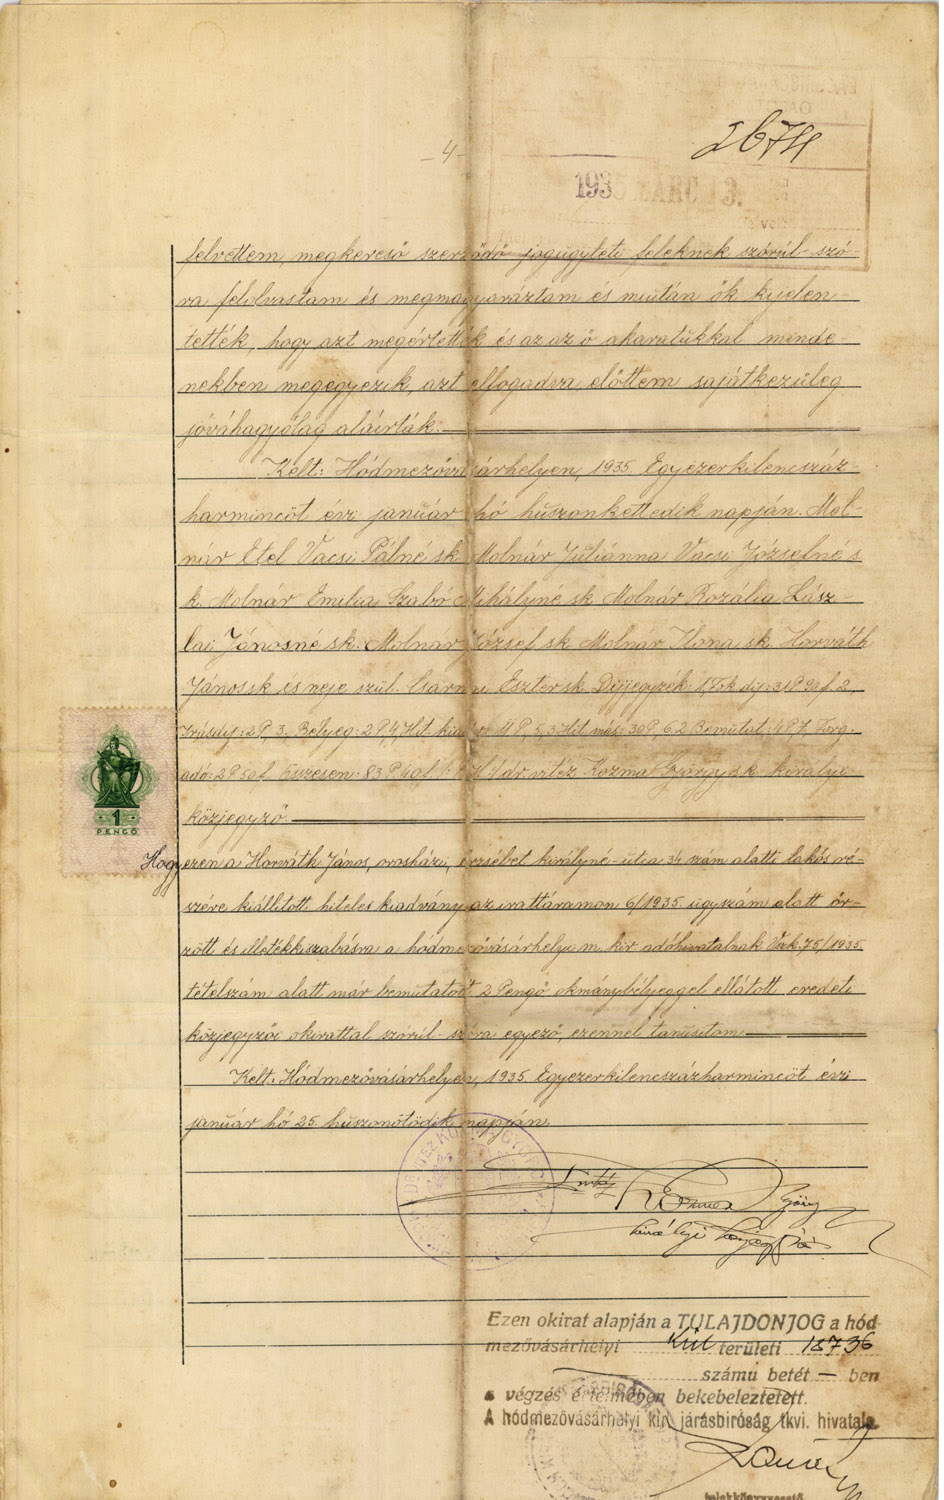 2674
-4-
1935 MÁRC 13.
felvettem, megkereső szerződő jogügyleti feleknek szórúl-szó-
ra felolvastam és megmagyaráztam és miután ők kijelen-
tették, hogy azt megértették és az az ő akaratukkal minde-
nekben megegyezik, azt elfogadva, előttem sajátkezűleg
jóváhagyólag aláírták.
Kelt: Hódmezővásárhelyen, 1935. Egyezerkilencszáz-
harmincöt évi január hó huszonkettedik napján. Mol-
nár Etel Vacsi Pálné sk. Molnár Juliánna Vacsi Józsefné s
k. Molnár Emilia Szabó Mihályné sk. Molnár Rozália Lász-
lai Jánosné sk. Molnár József sk. Molnár Ilona sk. Horváth
János sk és neje szül. Csarnai Eszter sk. Díjjegyzék: 1, 
Irásdíj: 2 P, 3, Bélyeg: 2 P, 4, Hit. 4 P, 5, 3 Hit. más: 30 P, 6, 2 Bemutat: 4 P, 7, Forg.
adó: 2 P 50 f. Összesen: 83 P 40 f. P. H. dr vitéz Kozma György sk. királyi
közjegyző.
1
PENGŐ
Hogy ezen a Horváth János, orosházi, Erzsébet királyné-utca 34 szám alatti lakós ré-
szére kiállított hiteles kiadvány az irattáramon 6/1935 ügyszám alatt őr-
zött és illetékkiszabásra a hódmezővásárhelyi m. kir. adóhivatalnak 75/1935
tételszám alatt már bemutatott 2 Pengő okmánybélyeggel ellátott eredeti
közjegyzői okirattal szórúl-szóra egyező, ezennel tanusítom.
Kelt: Hódmezővásárhelyen, 1935. Egyezerkilencszázharmincöt évi
január hó 25. huszonötödik napján.
DR VITÉZ KOZMA GYÖRGY
vitéz Kozma György
királyi közjegyző
Ezen okirat alapján a TULAJDONJOG a hód-
mezővásárhelyi Kül területi 18736
számú betét — ben
a végzés értelmében bekebeleztetett.
A hódmezővásárhelyi kir. járásbiróság tkvi. hivatala.
telekkönyvvezető